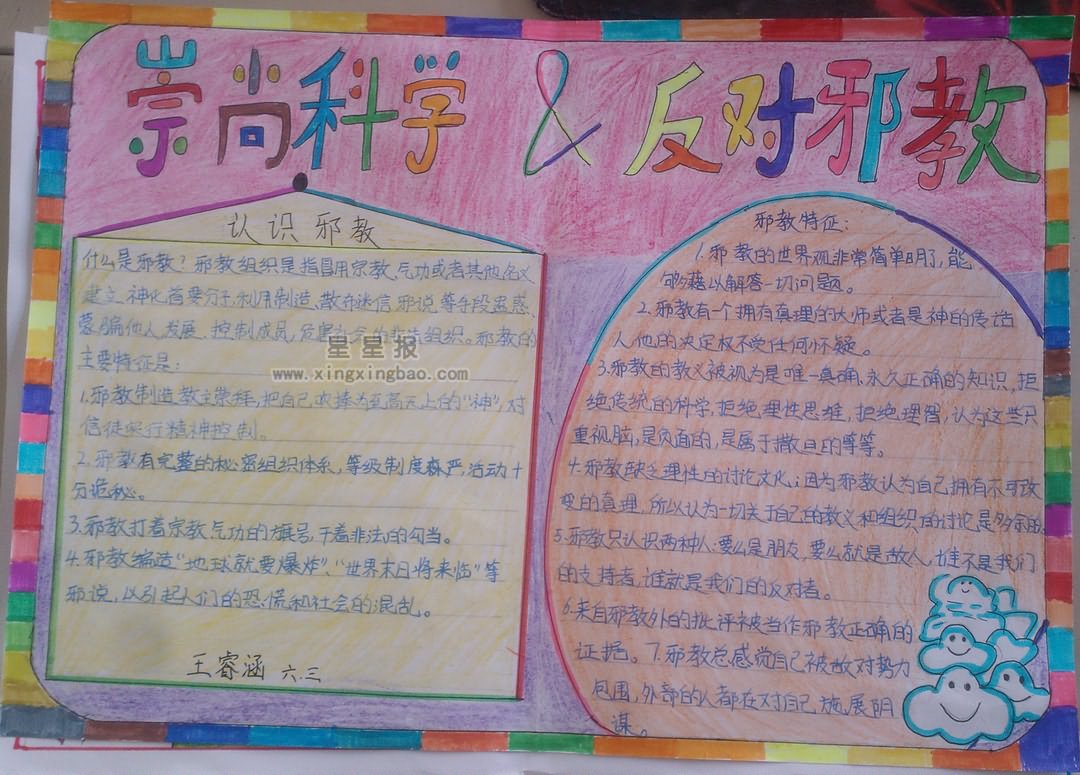 崇尚科学 & 反对邪教
认识邪教
什么是邪教?邪教组织是指冒用宗教、气功或者其他名义
建立、神化首要分子,利用制造、散布迷信邪说等手段蛊惑、
蒙骗他人,发展、控制成员,危害社会的非法组织。邪教的
主要特征是:
1.邪教制造教主崇拜,把自己吹捧为至高无上的“神”,对
信徒实行精神控制。
2.邪教有完整的秘密组织体系,等级制度森严,活动十
分诡秘。
3.邪教打着宗教气功的旗号,干着非法的勾当。
4.邪教编造“地球就要爆炸”、“世界末日将来临”等
邪说,以引起人们的恐慌和社会的混乱。
王睿涵 六.三
邪教特征:
1.邪教的世界观非常简单明了,能
够藉以解答一切问题。
2.邪教有一个拥有真理的大师或者是神的传话
人,他的决定权不受任何怀疑。
3.邪教的教义被视为是唯一真确、永久正确的知识,拒
绝传统的科学,拒绝理性思维,拒绝理智,认为这些只
重视脑,是负面的,是属于撒旦的等等。
4.邪教缺乏理性的讨论文化,因为邪教认为自己拥有不可改
变的真理,所以认为一切关于自己的教义和组织的讨论是多余的。
5.邪教只认识两种人:要么是朋友,要么就是敌人,谁不是我们
的支持者,谁就是我们的反对者。
6.来自邪教外的批评被当作邪教正确的
证据。7.邪教总感觉自己被敌对势力
包围,外部的人都在对自己施展阴
谋。
星星报
www.xingxingbao.com